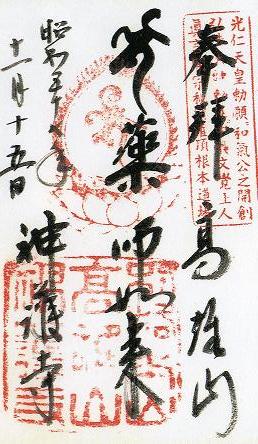 光仁天皇勅願、和氣公之開創
文覚上人
灌頂根本道場
奉拝 高雄山
薬師如来
神護寺
昭和五十年
十一月十五日